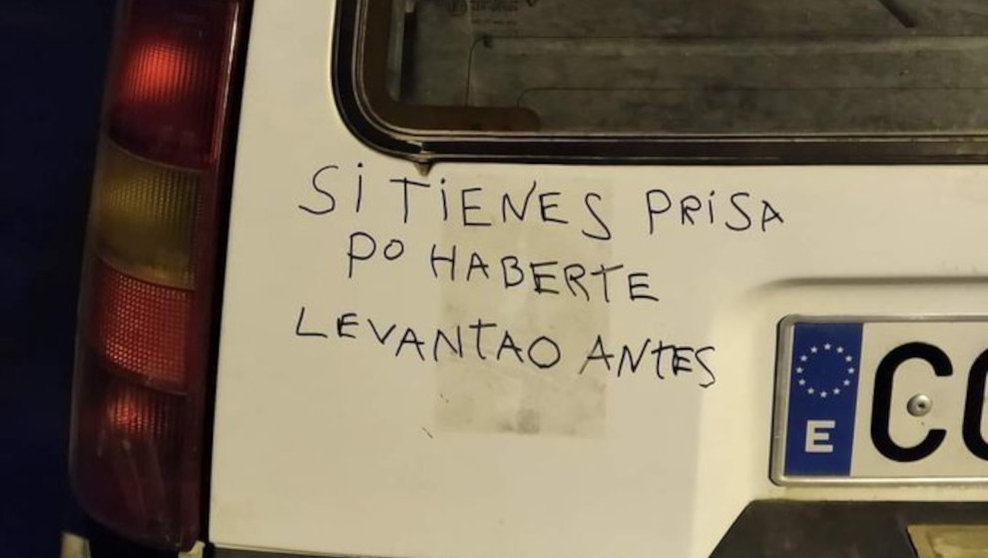 SI TIENES PRISA
PO HABERTE
LEVANTAO ANTES
E